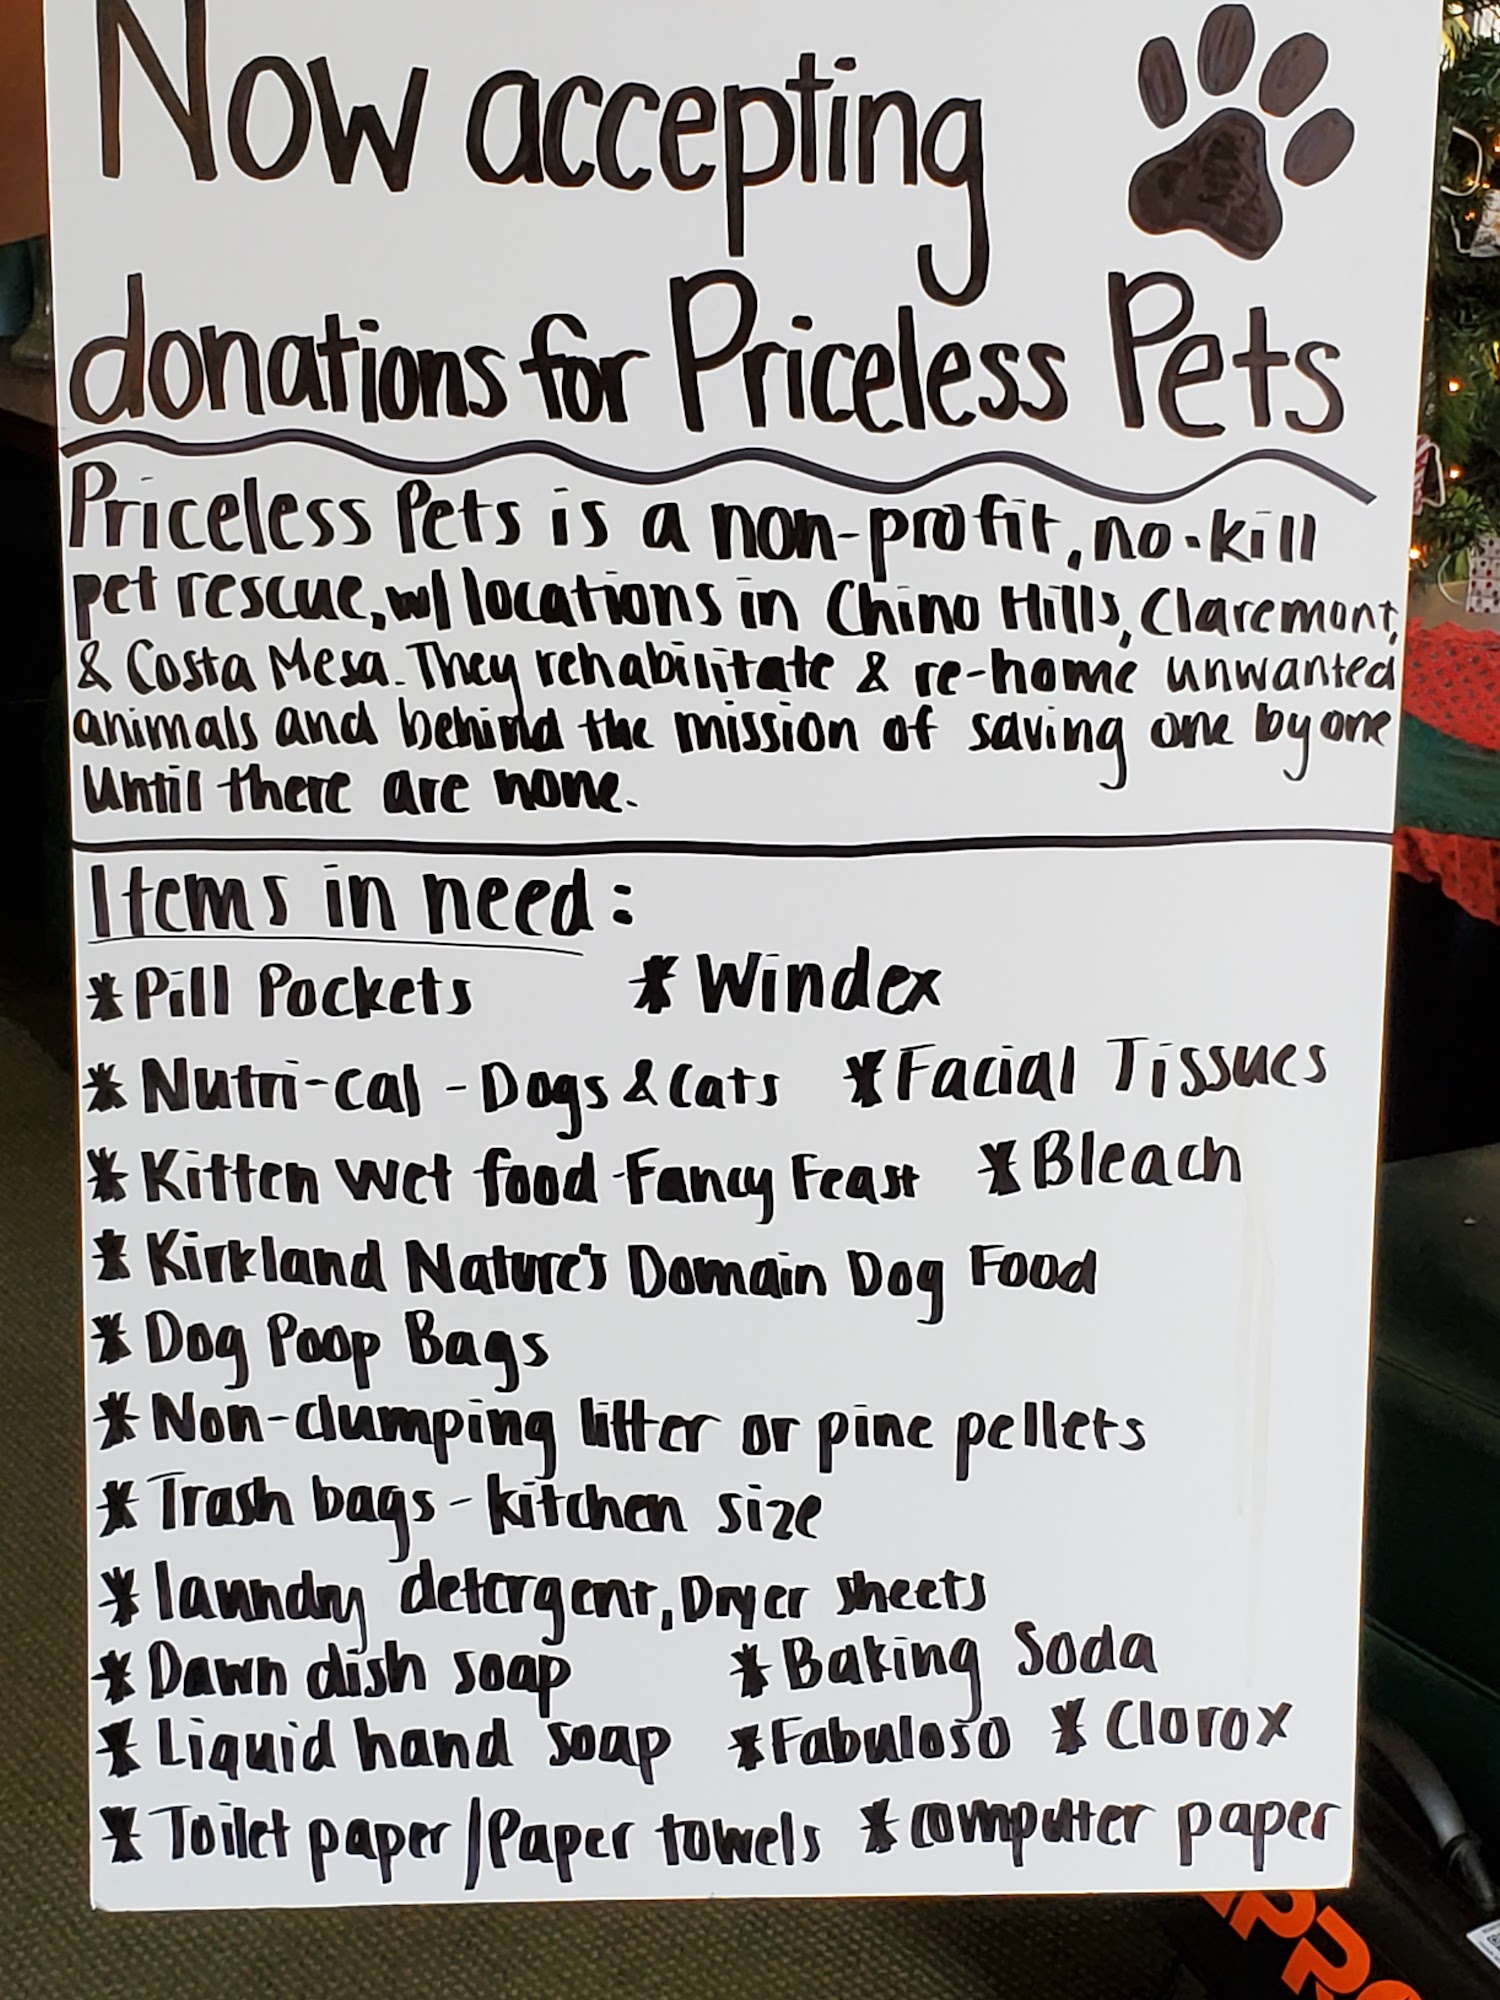 Now accepting
donations for Priceless Pets
Priceless Pets is a non-profit, no-kill
pet rescue, w/ locations in Chino Hills, Claremont,
& Costa Mesa. They rehabilitate & re-home unwanted
animals and behind the mission of saving one by one
until there are none.
Items in need:
* Pill Pockets * Windex
* Nutri-cal - Dogs & Cats * Facial Tissues
* Kitten wet food - Fancy Feast * Bleach
* Kirkland Nature's Domain Dog Food
* Dog Poop Bags
* Non-clumping litter or pine pellets
* Trash bags - kitchen size
* laundry detergent, Dryer sheets
* Dawn dish soap * Baking Soda
* Liquid hand soap * Fabuloso * Clorox
* Toilet paper/Paper towels * computer paper